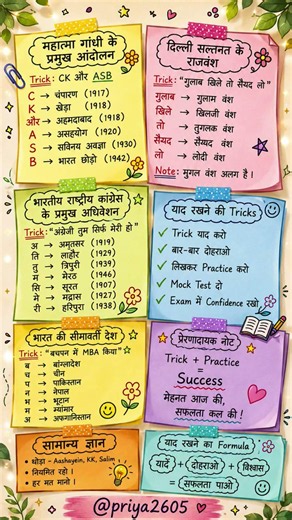 महात्मा गांधी के
प्रमुख आंदोलन
Trick: CK और ASB
C → चंपारण (1917)
K → खेड़ा (1918)
और → अहमदाबाद (1918)
A → असहयोग (1920)
S → सविनय अवज्ञा (1930)
B → भारत छोड़ो (1942)
दिल्ली सल्तनत के
राजवंश
Trick: "गुलाब खिले तो सैयद लो"
गुलाब → गुलाम वंश
खिले → खिलजी वंश
तो → तुगलक वंश
सैयद → सैय्यद वंश
लो → लोदी वंश
Note: मुगल वंश अलग है !
भारतीय राष्ट्रीय कांग्रेस
के प्रमुख अधिवेशन
Trick: "अंग्रेजी तुम सिर्फ मेरी हो"
अ → अमृतसर (1919)
ति → लाहौर (1929)
तु → त्रिपुरी (1939)
म → मेरठ (1946)
सि → सूरत (1907)
मे → मद्रास (1927)
री → हरिपुरा (1938)
याद रखने की Tricks
✓ Trick याद करो
✓ बार-बार दोहराओ
✓ लिखकर Practice करो
✓ Mock Test दो
✓ Exam में Confidence रखो
भारत की सीमावर्ती देश
Trick: "बचपन में MBA किया"
ब → बांग्लादेश
च → चीन
प → पाकिस्तान
न → नेपाल
भ → भूटान
म → म्यांमार
अ → अफगानिस्तान
प्रेरणादायक नोट
Trick + Practice
=
Success
मेहनत आज की,
सफलता कल की !
सामान्य ज्ञान
• थोड़ा - Aashayein, KK, Salim
• नियमित रहो !
• हर मत मानो !
याद रखने का Formula
यादें + दोहराओ + विश्वास
= सफलता पाओ
@priya2605